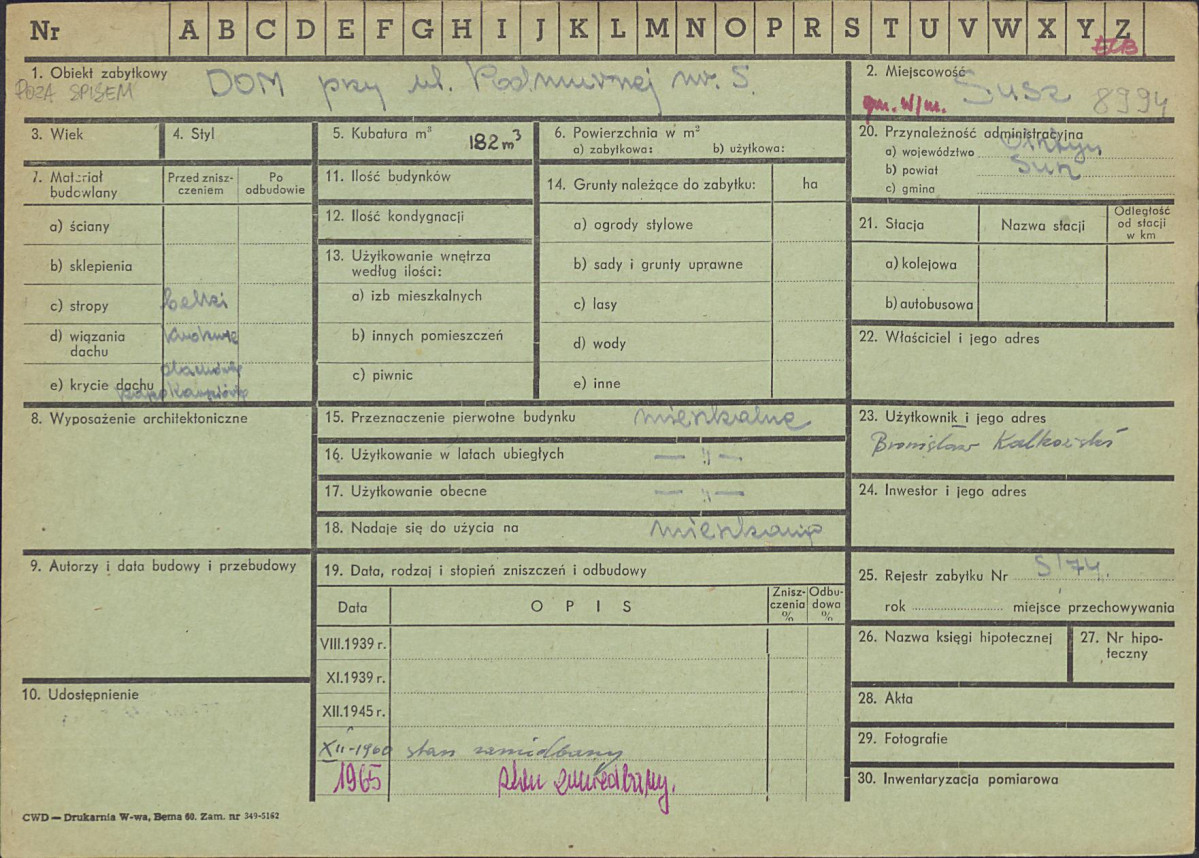 Nr A B C D E F G H I J K L M N O P R S T U V W X Y Z
ELB
1. Obiekt zabytkowy DOM przy ul. Podmurnej nr. 5.
POZA SPISEM
2. Miejscowość Susz 8994
gm. w/m.
3. Wiek
4. Styl
5. Kubatura m³ 182 m³
6. Powierzchnia w m²
a) zabytkowa: b) użytkowa:
20. Przynależność administracyjna
a) województwo Olsztyn
b) powiat Susz
c) gmina
7. Materiał budowlany
Przed zniszczeniem
Po odbudowie
a) ściany
b) sklepienia
c) stropy belki
d) wiązania dachu
e) krycie dachu dachówka
karpiówka
11. Ilość budynków
12. Ilość kondygnacji
13. Użytkowanie wnętrza
według ilości:
a) izb mieszkalnych
b) innych pomieszczeń
c) piwnic
14. Grunty należące do zabytku: ha
a) ogrody stylowe
b) sady i grunty uprawne
c) lasy
d) wody
e) inne
21. Stacja Nazwa stacji
Odległość od stacji w km
a) kolejowa
b) autobusowa
22. Właściciel i jego adres
8. Wyposażenie architektoniczne
15. Przeznaczenie pierwotne budynku mieszkalne
16. Użytkowanie w latach ubiegłych — „ —
17. Użytkowanie obecne — „ —
18. Nadaje się do użycia na mieszkania
23. Użytkownik i jego adres
Bronisław
24. Inwestor i jego adres
9. Autorzy i data budowy i przebudowy
19. Data, rodzaj i stopień zniszczeń i odbudowy
Data OPIS
Zniszczenia %
Odbudowa %
VIII.1939 r.
XI.1939 r.
XII.1945 r.
XII-1960 stan zaniedbany
1965 stan zaniedbany.
25. Rejestr zabytku Nr S/74.
rok miejsce przechowywania
26. Nazwa księgi hipotecznej
27. Nr hipoteczny
10. Udostępnienie
28. Akta
29. Fotografie
30. Inwentaryzacja pomiarowa
CWD — Drukarnia W-wa, Bema 60. Zam. nr 349-5162